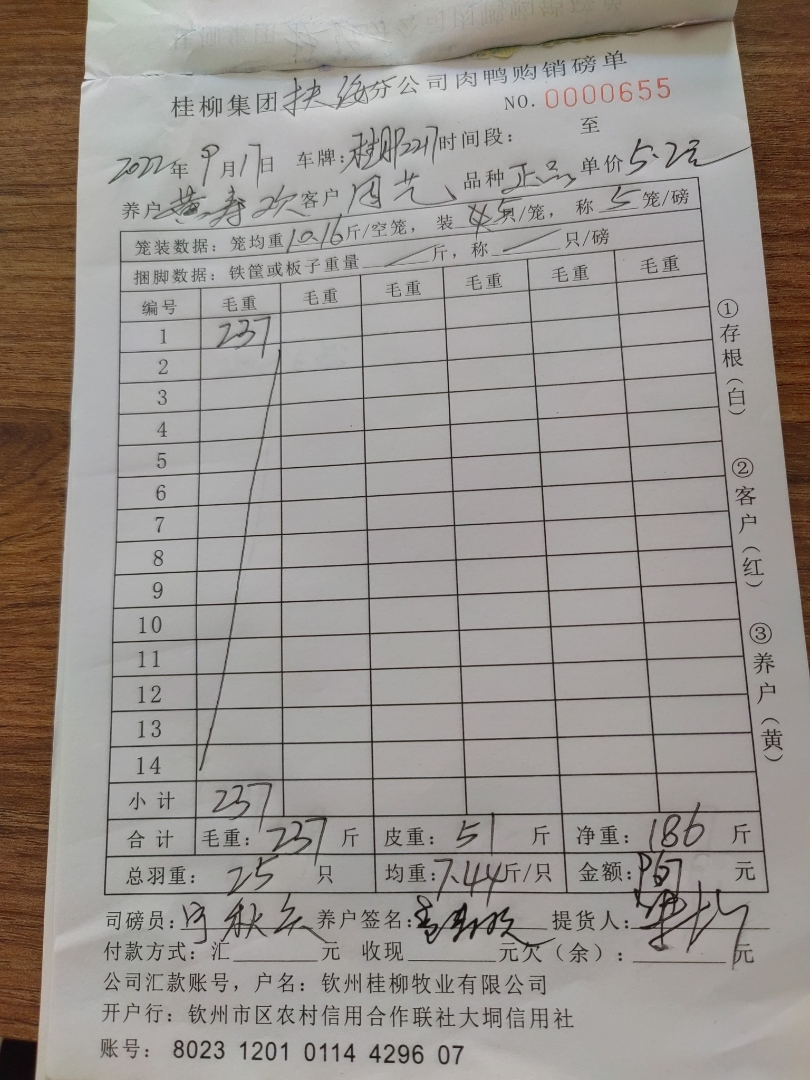 桂柳集团扶绥分公司肉鸭购销磅单
NO. 0000655
2022年9月17日 车牌: 2217时间段: 至
养户黄寿欢客户周艺 品种正品单价5.2元
笼装数据: 笼均重10.16斤/空笼, 装5只/笼, 称5笼/磅
捆脚数据: 铁筐或板子重量/斤, 称/只/磅
编号 毛重 毛重 毛重 毛重 毛重 毛重
1 237
2
3
4
5
6
7
8
9
10
11
12
13
14
小计 237
合计 毛重: 237斤 皮重: 51斤 净重: 186斤
总羽重: 25只 均重: 7.44斤/只 金额: 967元
司磅员: 养户签名: 提货人:
付款方式: 汇 元 收现 元欠(余): 元
公司汇款账号, 户名: 钦州桂柳牧业有限公司
开户行: 钦州市区农村信用合作联社大垌信用社
账号: 8023 1201 0114 4296 07
①存根(白)
②客户(红)
③养户(黄)